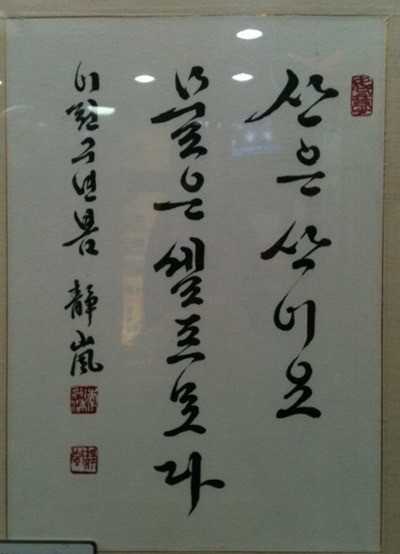 산은산이오
물은셀프로다
이천구년봄 靜嵐